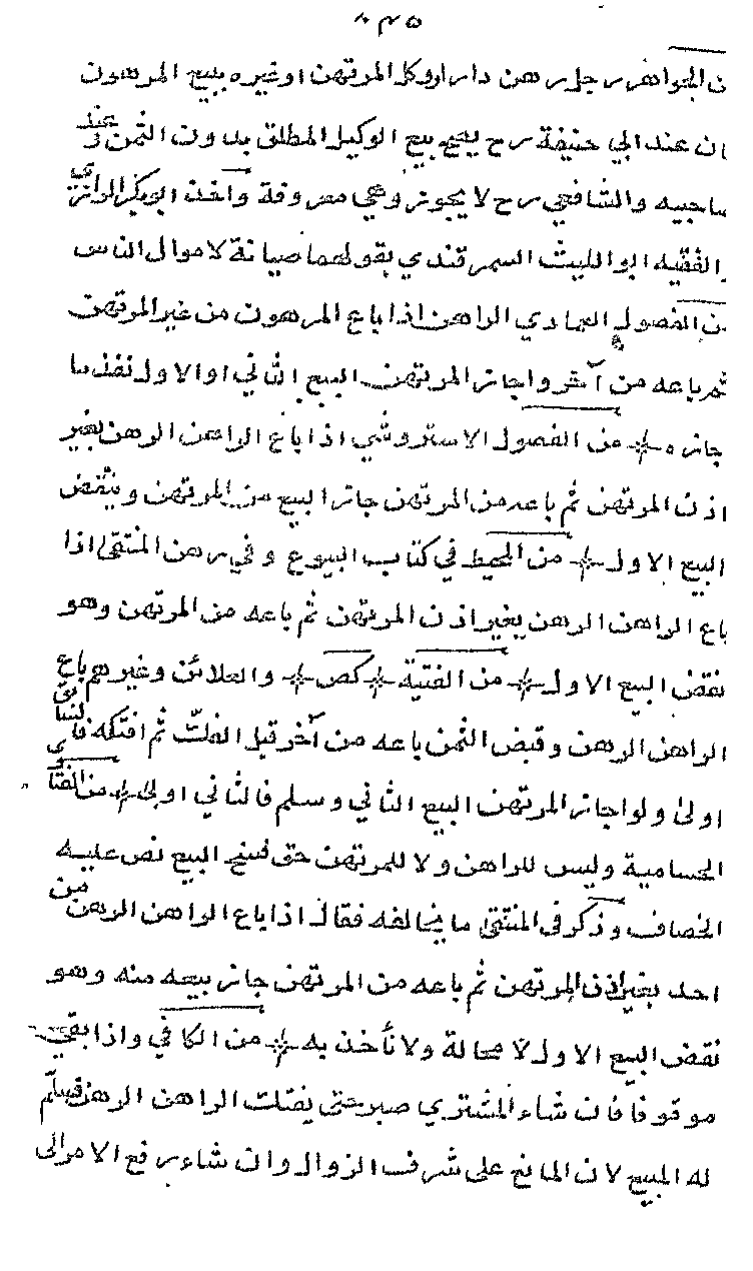 ٨٣٥
من الجواهر رجل رهن دارا ووكل المرتهن او غيره ببيع المرهون
عند ابي حنيفة رح يصح بيع الوكيل المطلق بدون الثمن وعند
صاحبيه والشافعي رح لا يجوز وهي معروفة واخذ ابو بكر الرازي
والفقيه ابو الليث السمرقندي بقولهما صيانة لاموال الناس
من الفصول العمادي الراهن اذا باع المرهون من غير المرتهن
ثم باعه من آخر واجاز المرتهن البيع الثاني او الاول نفذ ما
جازه من الفصول الاستروشني اذا باع الراهن الرهن بغير
اذن المرتهن ثم باعه من المرتهن جاز البيع من المرتهن وينتقض
البيع الاول من المحيط في كتاب البيوع وفي رهن المنتقى اذا
باع الراهن الرهن بغير اذن المرتهن ثم باعه من المرتهن وهو
نقض البيع الاول من القنية كص والعلائ وغيرهم باع
الراهن الرهن وقبض الثمن باعه من آخر قبل الفك ثم افتكه
اولى ولو اجاز المرتهن البيع الثاني وسلم فالثاني اولى من الفتاوى
الحسامية وليس للراهن ولا للمرتهن حق فسخ البيع نص عليه
الخصاف وذكر في المنتقى ما يخالفه فقال اذا باع الراهن الرهن من
احد بغير اذن المرتهن ثم باعه من المرتهن جاز بيعه منه وهو
نقض البيع الاول لا محالة ولا نأخذ به من الكافي واذا بقي
موقوفا فان شاء المشتري صبر حتى يفتك الراهن الرهن فيسلم
له المبيع لان المانع على شرف الزوال وان شاء رفع الامر الى